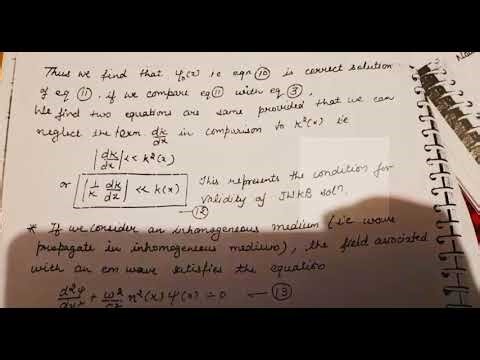 Thus we find that ψ₀(x) i.e eqn ⑩ is correct solution
of eq ⑪. if we compare eq ⑪ with eq ③,
We find two equations are same provided that we can
neglect the term dk/dx in comparison to k²(x) i.e
|dk/dx| << k²(x)
or |1/k dk/dx| << k(x) This represents the condition for
validity of JWKB solⁿ.
—⑫
* If we consider an inhomogeneous medium (i.e wave
propagate in inhomogeneous medium), the field associated
with an em wave satisfies the equation
d²ψ/dx² + ω²/c² n²(x) ψ(x) = 0 —⑬